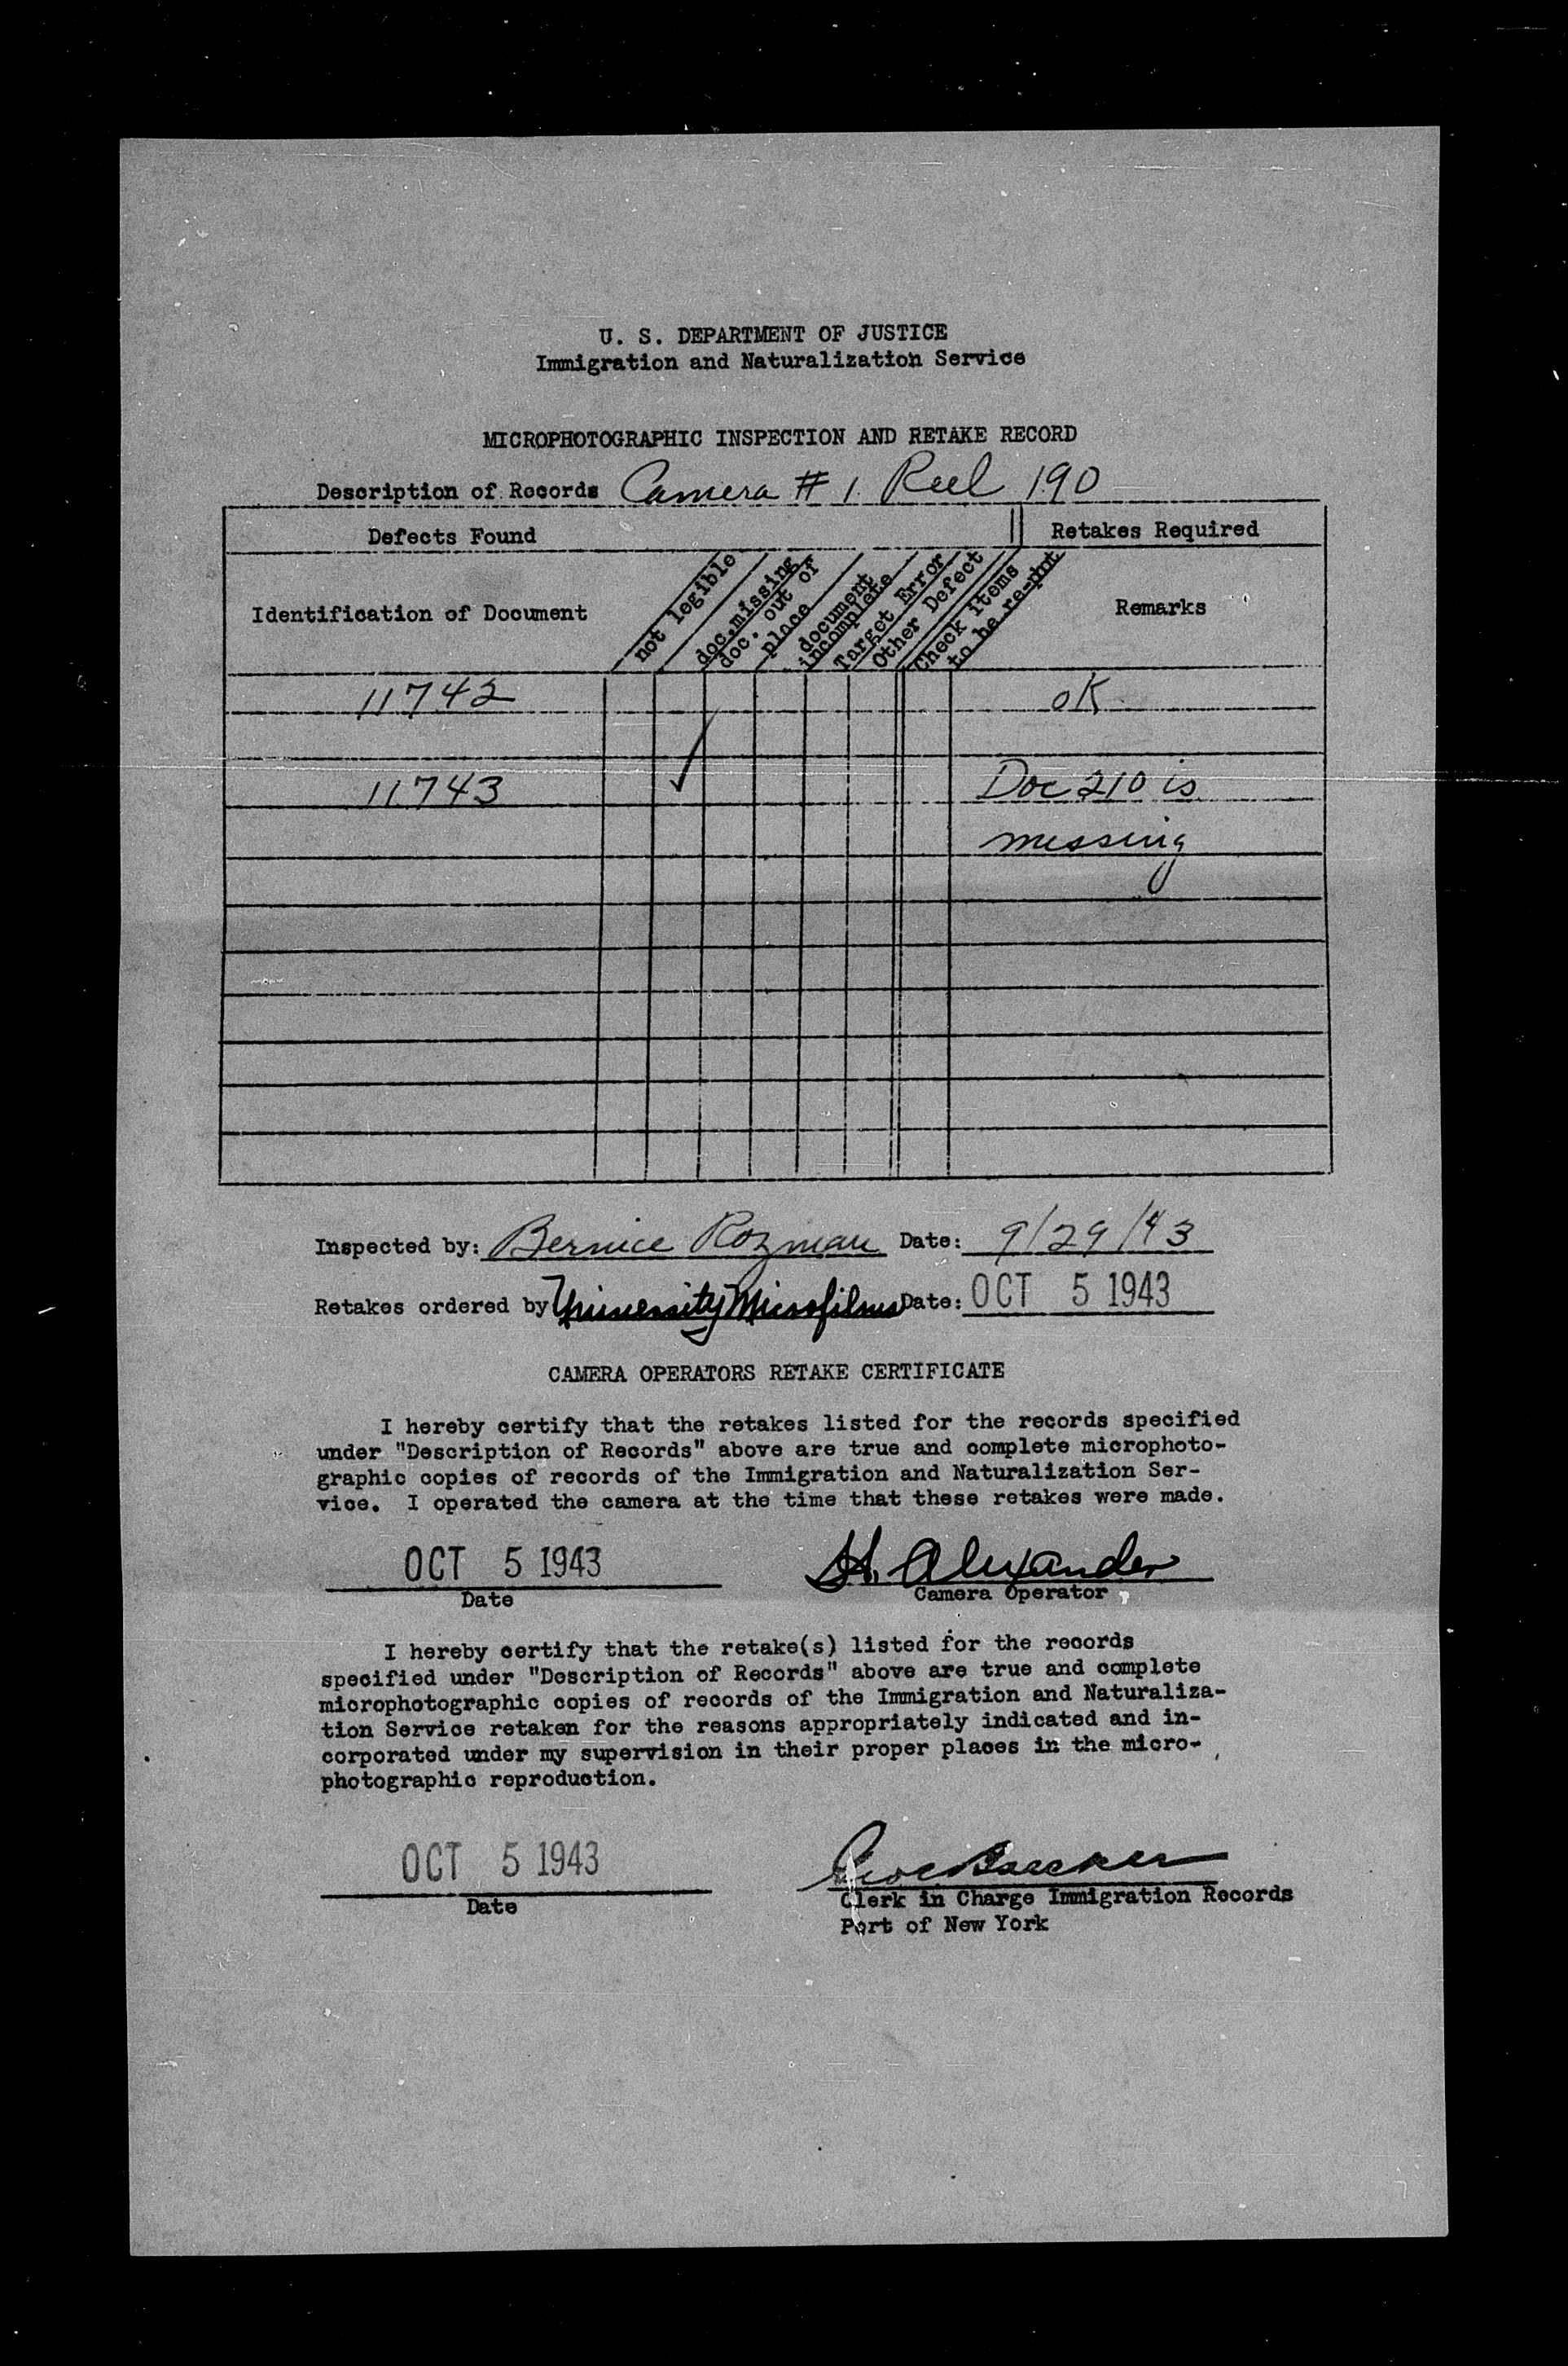 U. S. DEPARTMENT OF JUSTICE
Immigration and Naturalization Service
MICROPHOTOGRAPHIC INSPECTION AND RETAKE RECORD
Description of Records Camera # 1 Reel 190
Defects Found
Retakes Required
Identification of Document
not legible
doc. missing
doc. out of
place
document
incomplete
Target Error
Other Defect
Check items
to be re-phot
Remarks
11742 OK
11743 ✓ Doc 210 is
missing
Inspected by: Bernice Rozman Date: 9/29/43
Retakes ordered by University Microfilms Date: OCT 5 1943
CAMERA OPERATORS RETAKE CERTIFICATE
I hereby certify that the retakes listed for the records specified
under "Description of Records" above are true and complete microphoto-
graphic copies of records of the Immigration and Naturalization Ser-
vice. I operated the camera at the time that these retakes were made.
OCT 5 1943 H. Alexander
Date Camera Operator
I hereby certify that the retake(s) listed for the records
specified under "Description of Records" above are true and complete
microphotographic copies of records of the Immigration and Naturaliza-
tion Service retaken for the reasons appropriately indicated and in-
corporated under my supervision in their proper places in the micro-
photographic reproduction.
OCT 5 1943
Date Clerk in Charge Immigration Records
Port of New York